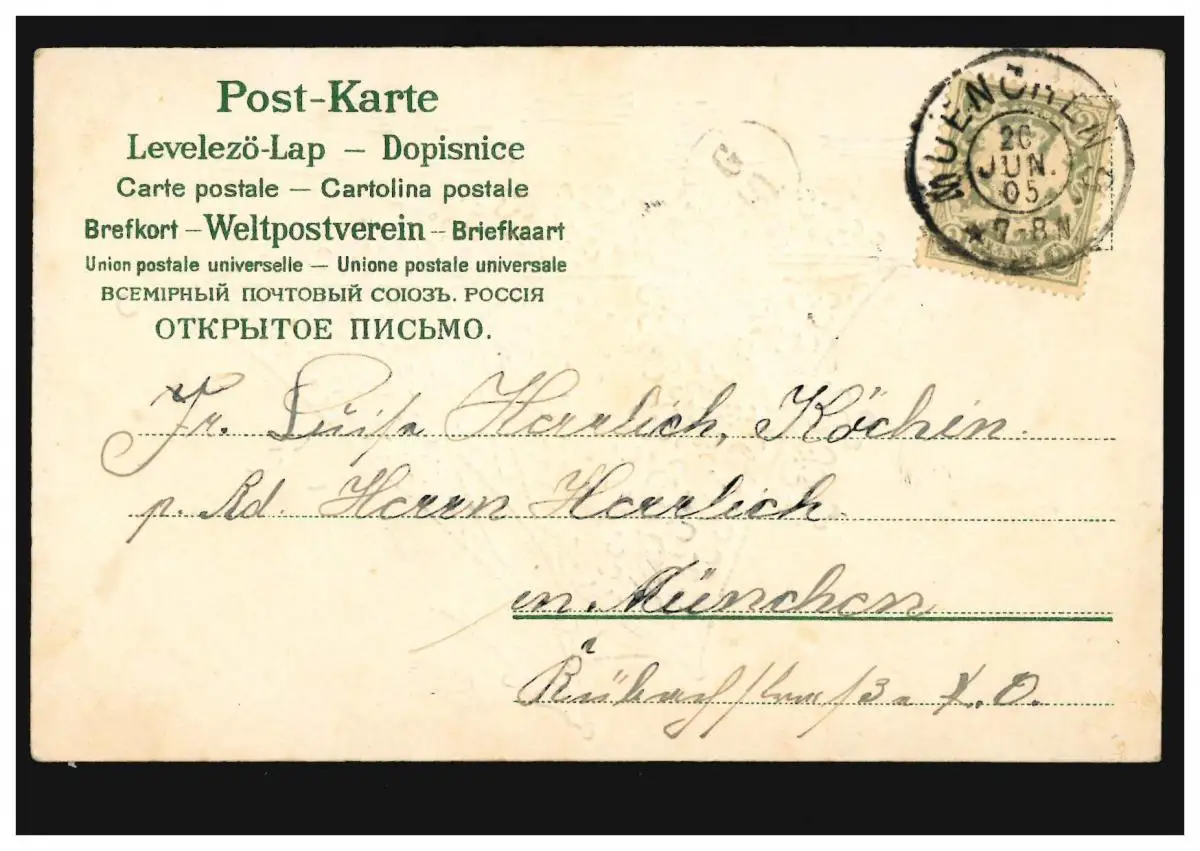 Post-Karte
Levelezö-Lap – Dopisnice
Carte postale — Cartolina postale
Brefkort – Weltpostverein – Briefkaart
Union postale universelle — Unione postale universale
ВСЕМІРНЫЙ ПОЧТОВЫЙ СОЮЗЪ. РОССІЯ
ОТКРЫТОЕ ПИСЬМО.
MUENCHEN
26
JUN.
05
7-8 N
Fr. Luise Herrlich, Köchin.
p. Ad. Herrn Herrlich
in München